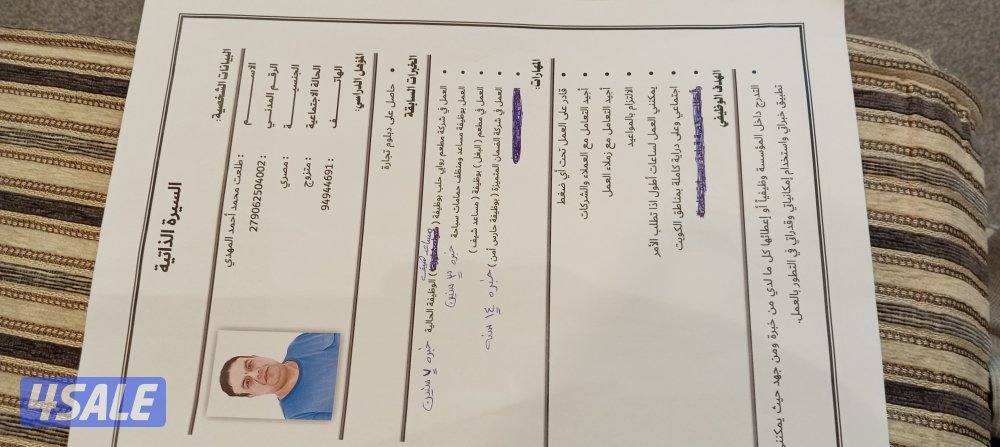 السيرة الذاتية
البيانات الشخصية:
الاســــــــم : طلعت محمد أحمد المهدي
الرقم المدني : 279062504002
الجنسيـــــة : مصري
الحالة الاجتماعية : متزوج
الهاتـــــــف : 94944691
المؤهل الدراسي:
• حاصل على دبلوم تجارة
الخبرات السابقة
• العمل في شركة مطعم روابي حلب بوظيفة ( مساعد شيف ) الوظيفة الحالية خبره ٧ سنين
• العمل بوظيفة مساعد ومنظف حمامات سباحة خبره ٣ سنين
• العمل في مطعم ( البغل ) بوظيفة ( مساعد شيف )
• العمل في شركة الضمان المتميزة ( بوظيفة حارس أمن ) خبره ١٤ سنه
المهارات:
• قادر على العمل تحت أي ضغط
• أجيد التعامل مع العملاء والشركات
• أجيد التعامل مع زملاء العمل
• الالتزام بالمواعيد
• يمكنني العمل لساعات أطول اذا تطلب الأمر
• اجتماعي وعلى دراية كاملة بمناطق الكويت
الهدف الوظيفي
• التدرج داخل المؤسسة وظيفياً أو إعطائها كل ما لدي من خبرة ومن جهد حيث يمكنني
تطبيق خبراتي واستخدام إمكانياتي وقدراتي في التطور بالعمل.
4SALE